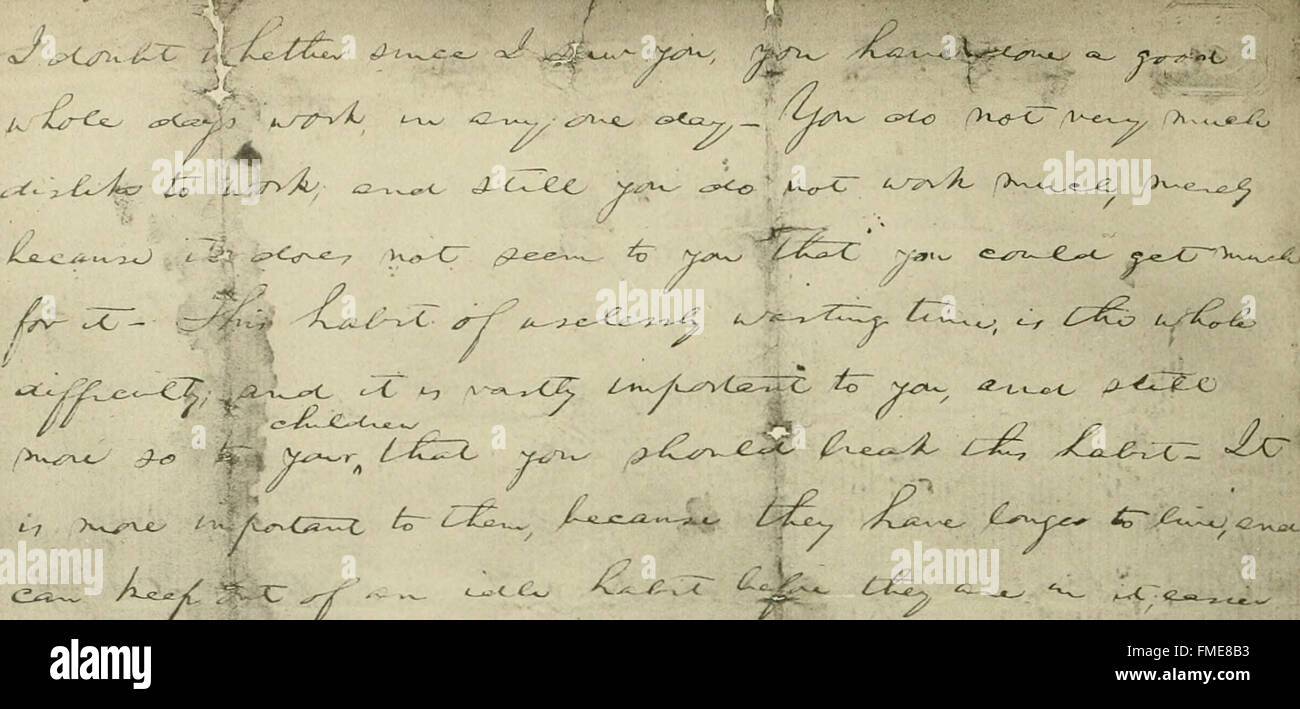 I doubt whether since I saw you, you have done a good
whole day's work, in any one day — You do not very much
dislike to work; and still you do not work much, merely
because it does not seem to you that you could get much
for it — This habit of uselessly wasting time, is the whole
difficulty; and it is vastly important to you, and still
children
more so to your, that you should break this habit — It
is more important to them, because they have longer to live, and
can keep out of an idle habit before they are in it, easier
alamy
Image ID: FME8B3
www.alamy.com